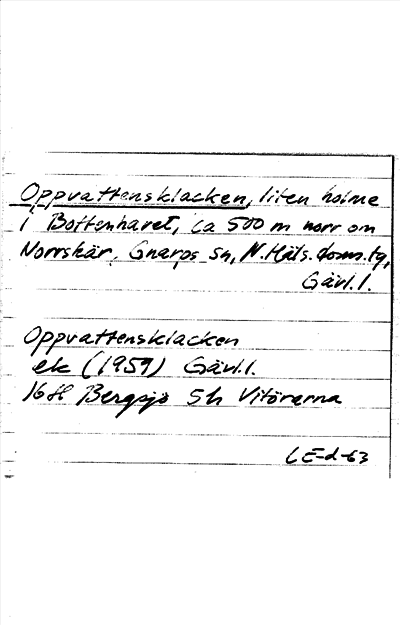 Oppvattensklacken, liten holme
i Bottenhavet, ca 500 m norr om
Norrskär, Gnarps sn, N.Häls. doms.tg,
Gävl.l.
Oppvattensklacken
ek (1959) Gävl.l.
16H Bergsjö 5h Vitörarna
LE-d-63